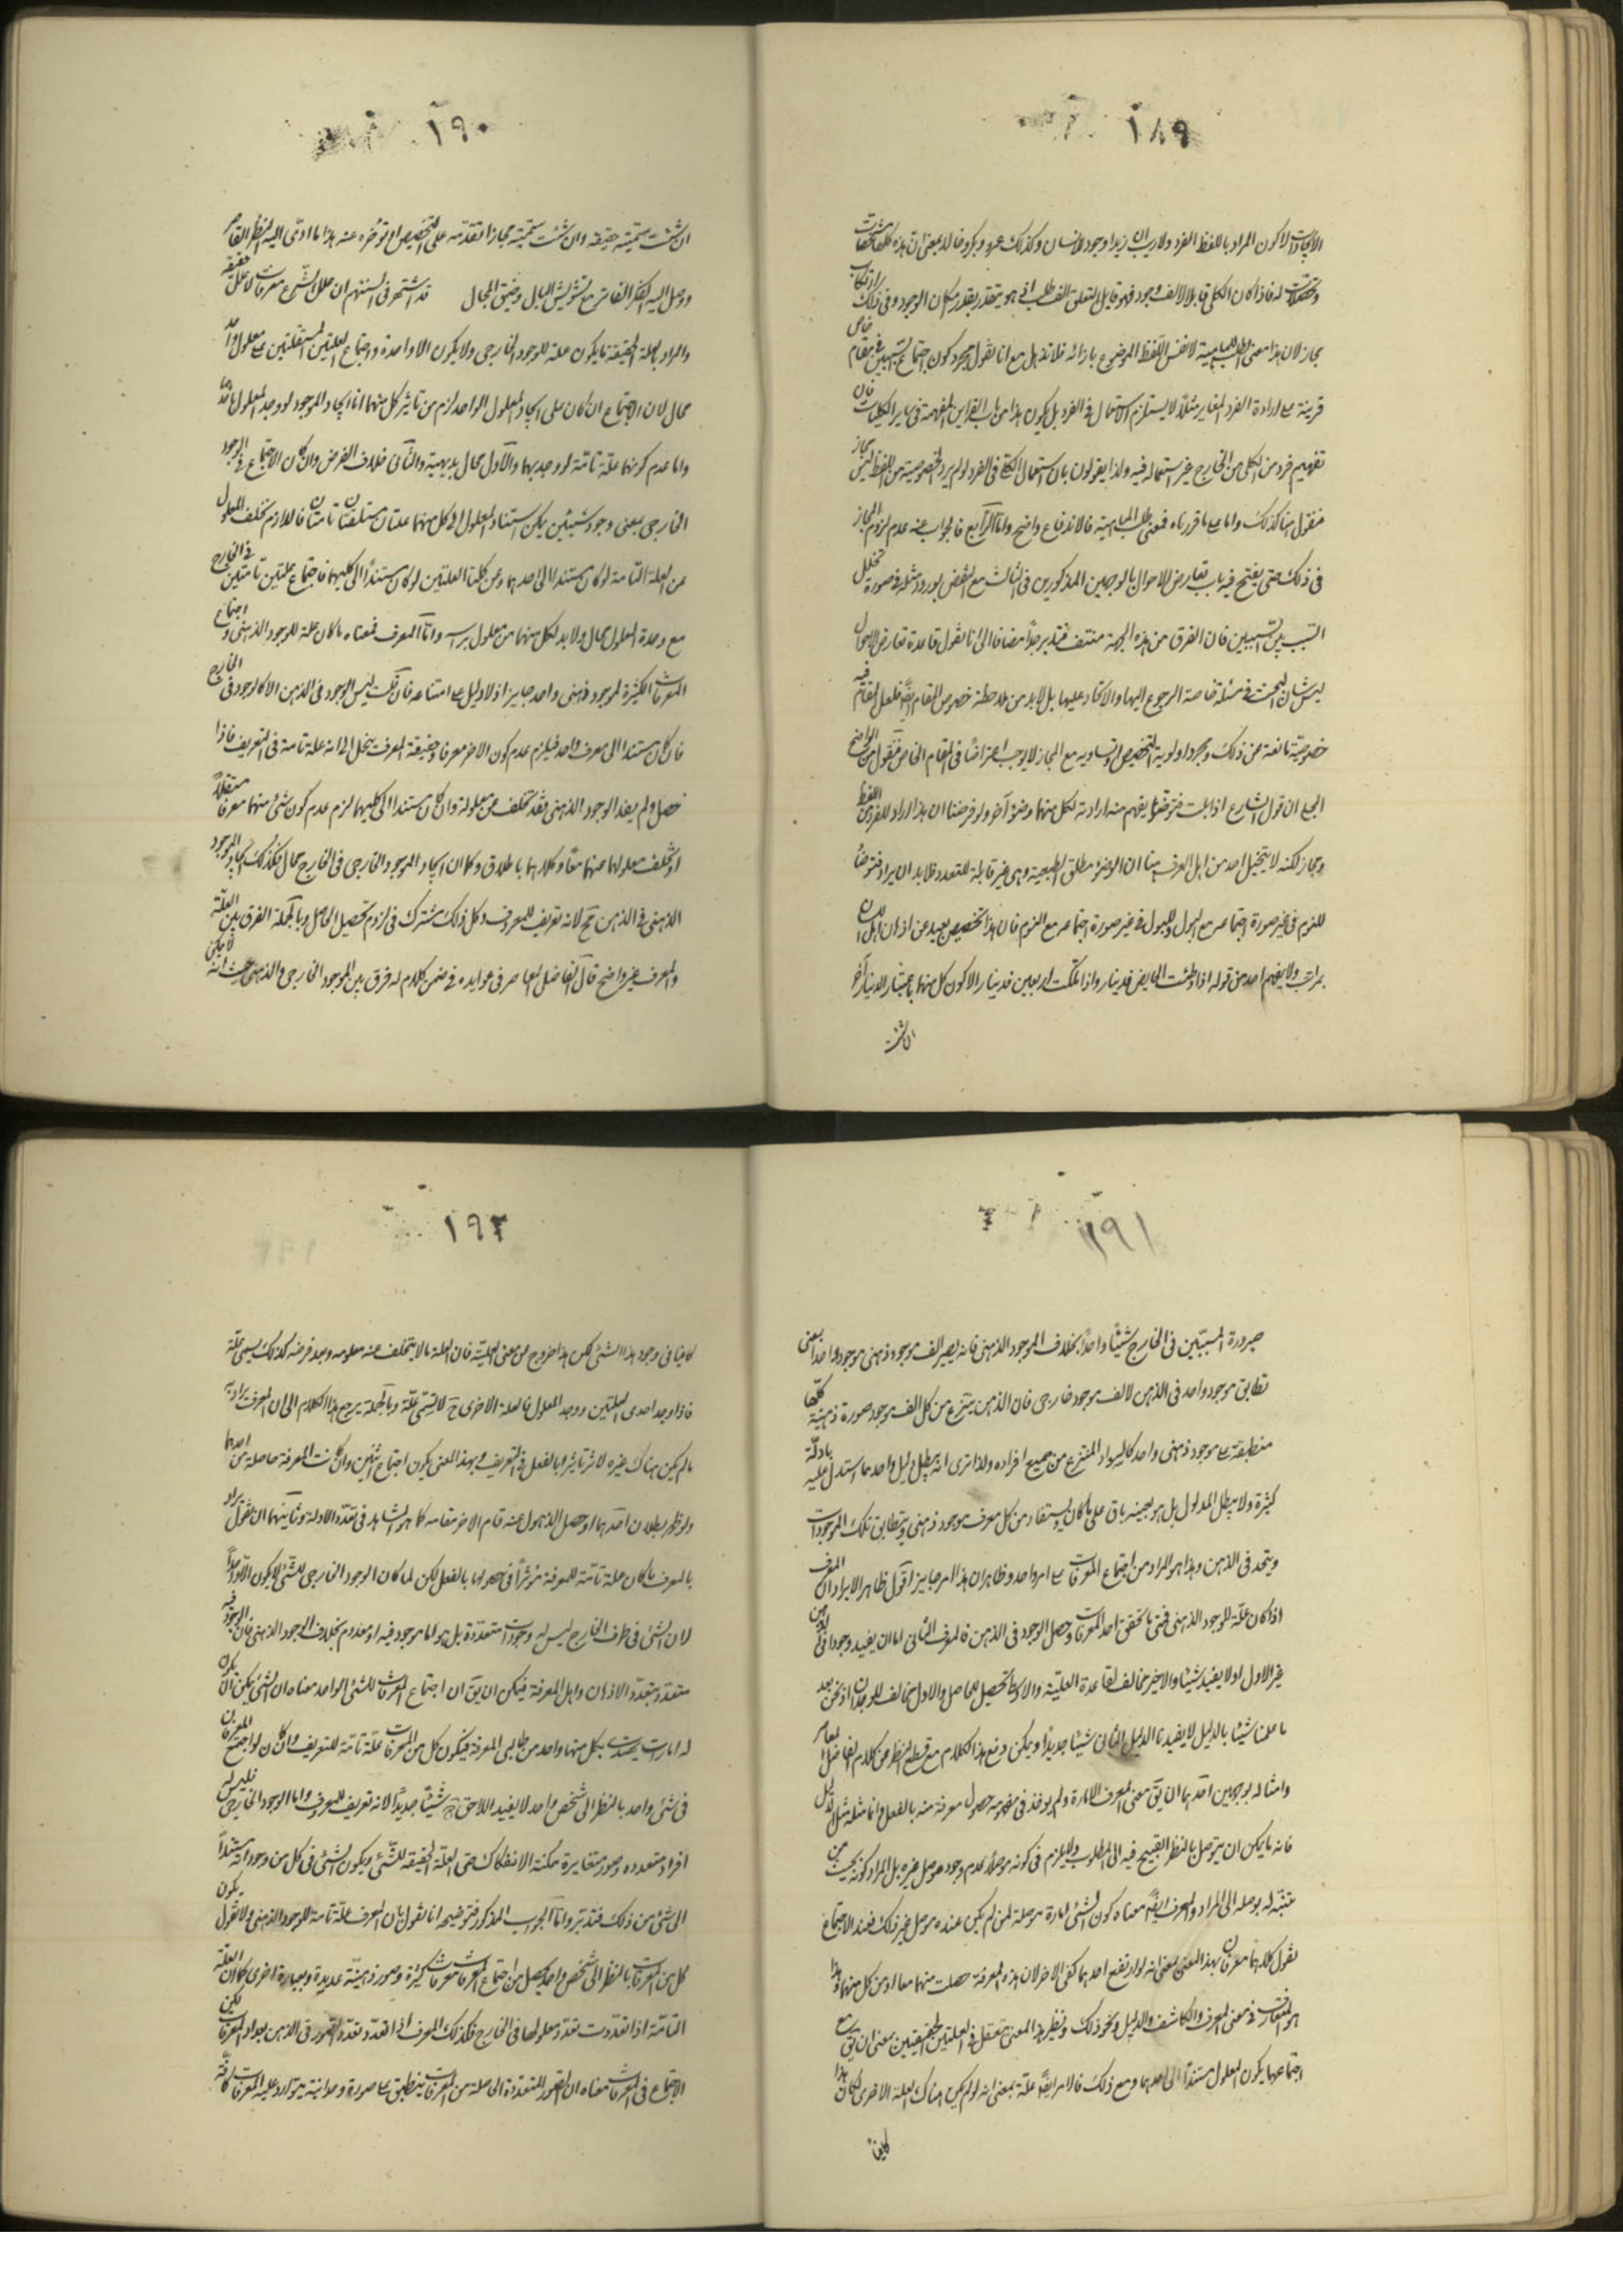 ١٨٩
الايجادات لا كون المراد باللفظ الفرد ولا ريب ان زيدا وجود للانسان وكذلك عمرو وبكر وخالد بمعنى ان هذه كلها تشخصات
وتحصلات له فاذا كان الكلى قابلا لالف وجود فهو قابل لتعلق الف طلب اى هو يتقدر بقدر مكان الوجود وفى ذلك ارتكاب
مجاز لان هذا معنى الطلب للماهية لا نفس اللفظ الموضوع بازائه فلا تذهل مع انا نقول مجرد كون اجتماع السببين فى مقام خاص
قرينة على ارادة الفرد المغاير مثلا لا يستلزم الاستعمال فى الفرد بل يكون هذا من باب القراين المفهمة فى ساير الكليات فان
تفهيم فرد من الكلى من الخارج غير استعماله فيه ولذا يقولون بان استعمال الكلى فى الفرد لو لم يرد الخصوصية من اللفظ ليس بمجاز
فنقول هنا كذلك واما على ما قررناه فمعنى طلب الماهية فالاندفاع واضح واما الرابع فالجواب عنه عدم لزوم المجاز
فى ذلك حتى يفتح فيه باب تعارض الاحوال بالوجهين المذكورين فى الثالث مع النقض بورود مثله فى صورة تخلل
السبب بين السببين فان الفرق من هذه الجهة منتف فتدبر جدا مضافا الى انا نقول قاعدة تعارض الاحوال
ليس شان البحث فى مسئلة خاصة الرجوع اليها والاتكاد عليها بل لابد من ملاحظة خصوص المقام ايضا فلعل المقام فيه
خصوصية مانعة عن ذلك ومجرد اولوية التخصيص او تساويه مع المجاز لا يوجب اعتراضا فى المقام الخاص فنقول من الواضح
الجلى ان قول الشارع اذا بلت فتوضأ يفهم منه ارادته لكل منهما وضوء آخر ولو فرضنا ان هذا اراد للفرد من اللفظ
ومجاز لكنه لا يتخيل احد من اهل العرف هنا ان الوضوء مطلق الطبيعة وهى غير قابلة للتعدد فلابد ان يراد فتوضأ
للنوم فى غير صورة اجتماعه مع البول وللبول فى غير صورة اجتماعه مع النوم فان هذا تخصيص بعيد عن اذهان اهل اللسان
بمراتب ولا يفهم احد من قوله اذا وطئت الحايض فدينار واذا ملكت اربعين فدينار الا كون كل منهما باعتبار الدينار آخر
ان شئت
١٩٠
ان شئت سميته حقيقة وان شئت سميته مجازا تقدمه على التخصيص او تؤخره عنه هذا ما ادى اليه النظر القاصر
ووصل اليه الفكر الفاتر مع تشويش البال وضيق المجال قد اشتهر فى السنتهم ان علل الشرع معرفات لا علل حقيقة
والمراد بالعلة الحقيقة ما يكون علة للوجود الخارجى ولا يكون الا واحدة واجتماع العلتين المستقلتين على معلول واحد
محال لان الاجتماع ان كان على ايجاد المعلول الواحد لزم من تاثير كل منهما اما ايجاد الموجود لو وجد المعلول باحدهما
واما عدم كونهما علة تامة لو وجد بهما والاول محال بديهية والثانى خلاف الفرض وان كان الاجتماع فى الوجود
الخارجى بمعنى وجود شيئين يمكن استناد المعلول الى كل منهما علتان مستقلتان تامتان فاللازم تخلف المعلول
عن العلة التامة لو كان مستندا الى احدهما وعن كلتا العلتين لو كان مستندا الى كليهما فاجتماع علتين تامتين فى الخارج
مع وحدة المعلول محال ولابد لكل منهما من معلول براسه واما المعرف فمعناه ما كان علة للوجود الذهنى واجتماع
المعرفات الكثيرة لموجود ذهنى واحد جايز اذ لا دليل على امتناعه فان قلت ليس الوجود فى الذهن الا كالوجود فى الخارج
فان كان مستندا الى معرف واحد فيلزم عدم كون الاخر معرفا وحقيقة المعرف ينحل الى انه علة تامة فى التعريف فاذا
حصل ولم يفد الوجود الذهنى فقد تخلف عن معلوله وان كان مستندا الى كليهما لزم عدم كون شئ منهما معرفا مستقلا
او تخلف معلولهما عنهما معا وكلاهما باطلان وكما ان ايجاد الموجود الخارجى فى الخارج محال فكذلك ايجاد الموجود
الذهنى فى الذهن مح لانه تعريف للمعروف وكل ذلك مشترك فى لزوم تحصيل الحاصل وبالجملة الفرق بين العلة
والمعرف غير واضح قال الفاضل المعاصر فى عوايده فى ضمن كلام له فرق بين الموجود الخارجى والذهنى حيث انه لا يمكن
١٩١
صيرورة المسببين فى الخارج شيئا واحدا بخلاف الموجود الذهنى فانه يصير الف موجود ذهنى موجودا واحدا بمعنى
تطابق موجود واحد فى الذهن لالف موجود خارجى فان الذهن ينتزع من كل الف موجود صورة ذهنية كلها
منطبقة على موجود ذهنى واحد كالسواد المنتزع من جميع افراده ولذا ترى انه يبطل دليل واحد مما استدل عليه بادلة
كثيرة ولا يبطل المدلول بل هو بعينه باق على ما كان ويستفاد من كل معرف موجود ذهنى ويتطابق تلك الموجودات
ويتحد فى الذهن وهذا هو المراد من اجتماع المعرفات على امر واحد وظاهر ان هذا امر جايز اقول ظاهر الايراد ان المعرف
اذا كان علة للوجود الذهنى فمتى ما تحقق احد المعرفات حصل الوجود فى الذهن فالمعرف الثانى اما ان يفيد وجودا فى الذهن
غير الاول او لا يفيد شيئا والاخير مخالف لقاعدة العلية والاوسط تحصيل للحاصل والاول مخالف للوجدان اذ نحن بعد
ما علمنا شيئا بالدليل لا يفيدنا الدليل الثانى شيئا جديدا ويمكن دفع هذا الكلام مع قطع النظر عن كلام الفاضل المعاصر
وامثاله بوجهين احدهما ان يق معنى المعرف الامارة ولم يوخذ فى مفهومه حصول معرفة منه بالفعل وانما مثله مثل الدليل
فانه ما يمكن ان يتوصل بالنظر الصحيح فيه الى المطلوب ولا يلزم فى كونه موصلا عدم وجود موصل غيره بل المراد كونه بحيث من
تنبه له يوصله الى المراد والمعرف ايضا معناه كون الشئ امارة موصلة لمن لم يكن عنده موصل غير ذلك فعند الاجتماع
نقول كلاهما معرفان بهذا المعنى بمعنى انه لو ارتفع احدهما كفى الاخر لان هذه المعرفة حصلت منهما معا او من كل منهما وهذا
هو المتعارف فى معنى المعرف والكاشف والدليل ونحو ذلك ونظير هذا المعنى يتعقل فى العلتين الحقيقيتين بمعنى ان يق مع
اجتماعهما يكون المعلول مستندا الى احدهما ومع ذلك فالاخر ايضا علة بمعنى انه لو لم يكن هناك العلة الاخرى لكان هذا
كافيا
١٩٢
كافيا فى وجود هذا الشئ لكن هذا خروج عن معنى العلية فان العلة ما لا يتخلف عنه معلوله وبعد فرضه كذلك ليسمى علة
فاذا وجد احدى العلتين ووجد المعلول فالعلة الاخرى ح لا يسمى علة وبالجملة يرجع هذا الكلام الى ان المعرف يراد به
ما لم يكن هناك غيره لاثر تاثيرا بالفعل فى التعريف وبهذا المعنى يكون اجتماع اثنين وان كانت المعرفة حاصلة من احدهما
ولو ظهر بطلان احدهما او حصل الذهول عنه قام الاخر مقامه كما هو المشاهد فى تعدد الادلة وثانيهما ان نقول يراد
بالمعرف ما كان علة تامة للمعرفة مؤثرا فى حصولها بالفعل لكن لما كان الوجود الخارجى للشئ لا يكون الا واحدا
لان الشئ فى ظرف الخارج ليس له وجودات متعددة بل هو اما موجود فيه او معدوم بخلاف الوجود الذهنى فان الوجود فيه
متعدد بتعدد الاذهان واهل المعرفة فيمكن ان يق ان اجتماع المعرفات للشئ الواحد معناه ان الشئ يمكن ان يكون
له امارات يهتدى بكل منهما واحد من طالبى المعرفة فيكون كل من المعرفات علة تامة للتعريف وان كان لو اجتمع المعرفان
فى شئ واحد بالنظر الى شخص واحد لا يفيد اللاحق ح شيئا جديدا لانه تعريف للمعروف واما الوجود الخارجى فليس له
افراد متعدده وصور متغايرة ممكنة الانفكاك حتى العلة الحقيقة للشئ ويكون الشئ فى كل من وجوداته مستندا
الى شئ من ذلك فتدبر واما الجواب المذكور فتوضيحه انا نقول بان المعرف علة تامة للوجود الذهنى ولا نقول يكون
كل من المعرفات بالنظر الى شخص واحد فيحصل من اجتماع المعرفات معرفات كثيرة وصور ذهنية عديدة وبعبارة اخرى كما ان العلة
التامة اذا تعددت تعدد معلولها فى الخارج فكذلك المعرف اذا تعدد تعدد الصور فى الذهن بعدد المعرفات لكن
الاجتماع فى المعرفات معناه ان الصور المتعددة الحاصلة من المعرفات ينطبق على صورة وحدانية يتوارد عليه المعرفات كافة